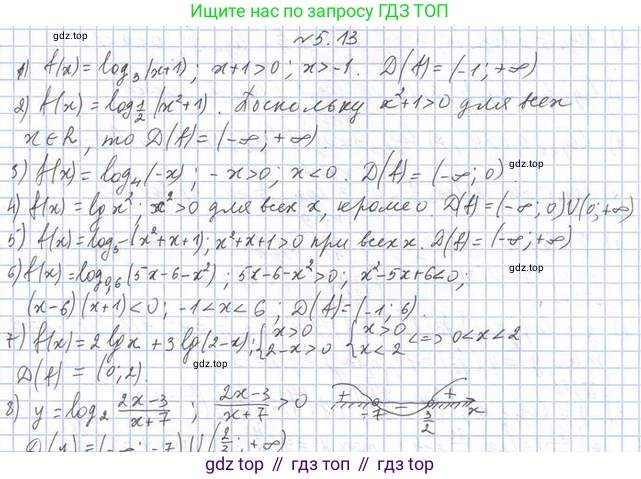 Ищите нас по запросу ГДЗ ТОП
№5.13
1) f(x)=log₃(x+1); x+1>0; x>-1. D(f)=(-1;+∞)
2) f(x)=log_{1/2}(x²+1). Поскольку x²+1>0 для всех
x∈R, то D(f)=(-∞;+∞).
3) f(x)=log₄(-x); -x>0; x<0. D(f)=(-∞;0).
4) f(x)=lg x²; x²>0 для всех x, кроме 0. D(f)=(-∞;0)U(0;+∞)
5) f(x)=log₅(x²+x+1); x²+x+1>0 при всех x. D(f)=(-∞;+∞)
6) f(x)=log_{0,6}(5x-6-x²); 5x-6-x²>0; x²-5x+6<0;
(x-6)(x+1)<0; -1<x<6; D(f)=(-1;6).
7) f(x)=2lgx+3lg(2-x); {x>0 2-x>0 {x>0 x<2 <=> 0<x<2
D(f)=(0;2).
8) y=log₂ (2x-3)/(x+7); (2x-3)/(x+7)>0 + -7 - 3/2 + x
гдз топ // гдз топ // гдз топ